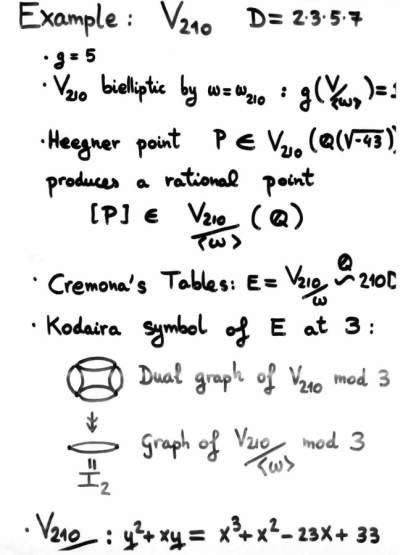 Example: V₂₁₀ D = 2·3·5·7
· g = 5
· V₂₁₀ bielliptic by ω = ω₂₁₀ : g(V/⟨ω⟩) = 1
· Heegner point P ∈ V₂₁₀ (Q(√-43))
produces a rational point
[P] ∈ V₂₁₀/⟨ω⟩ (Q)
· Cremona's Tables: E = V₂₁₀/ω ~Q 210D
· Kodaira symbol of E at 3:
Dual graph of V₂₁₀ mod 3
Graph of V₂₁₀/⟨ω⟩ mod 3
I₂
· V₂₁₀ : y² + xy = x³ + x² - 23x + 33